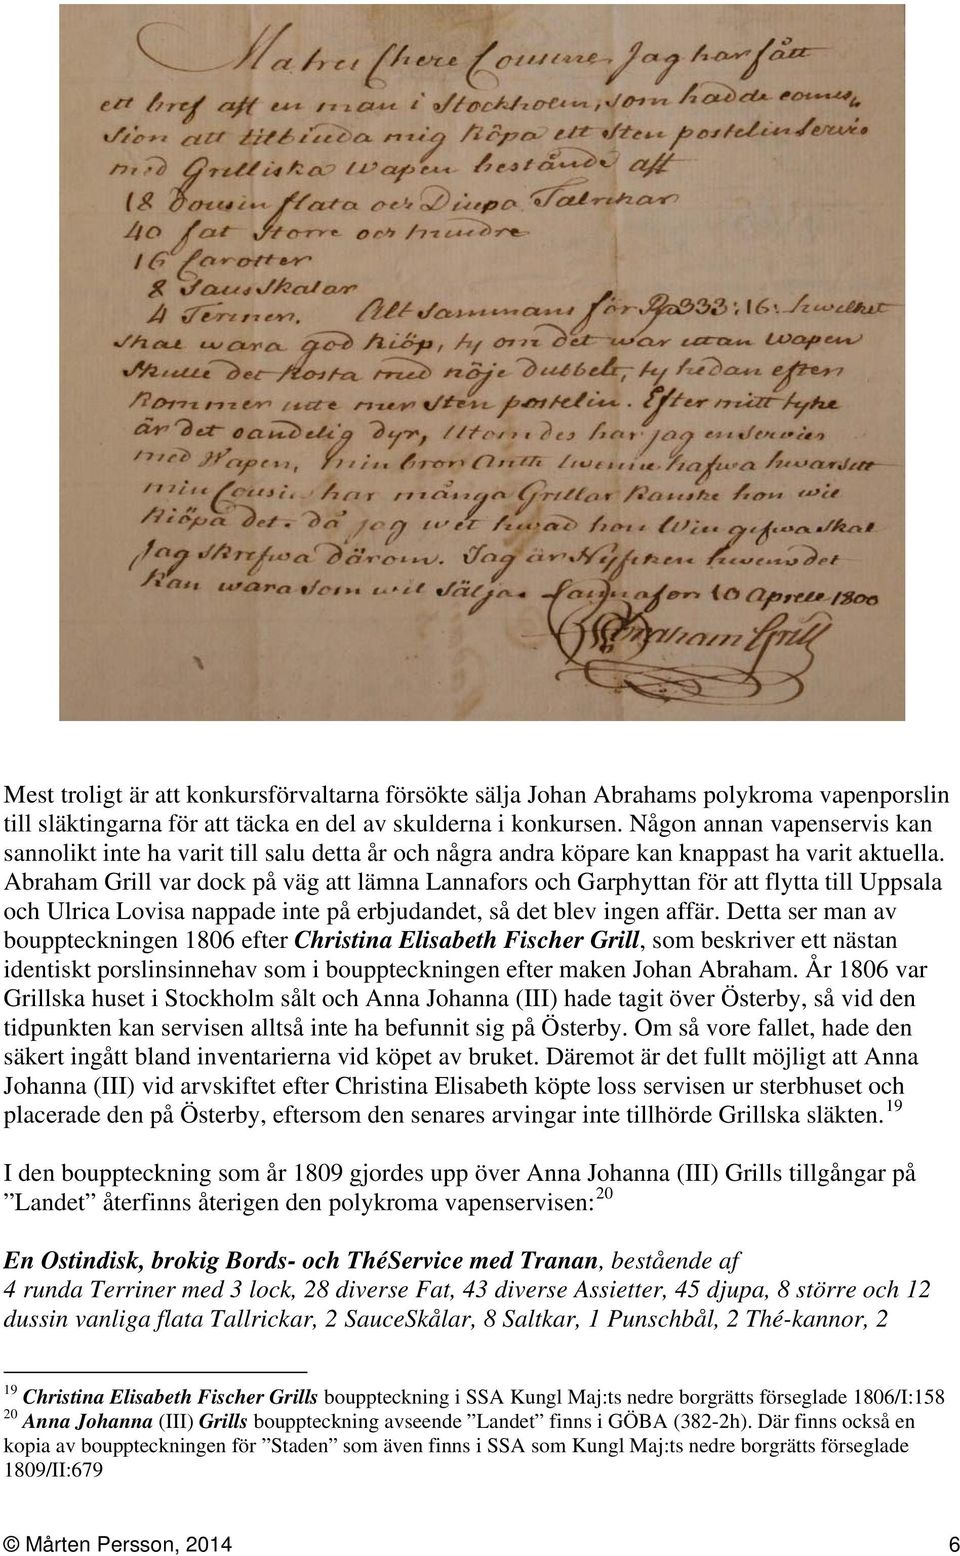 Ma tres Chere Cousine, Jag har fått
ett bref aff en man i Stockholm, som hadde comes,,
sion att tilbiuda mig köpa ett Sten postelin Servis
med Grilliska Wapen bestånde aff
18 Dousin flata och Diupa Talrickar
40 fat Storre och mindre
16 Carotter
8 Saus Skalar
4 Terinen. Alt Sammans för 333:16: hwilket
skal wara god kiöp, ty om det war uttan wapen
Skulle det kosta med nöje dubbelt, ty hedan efter
kommer inte mer Sten postelin. Efter mitt tyke
är det oandelig dyr, Utom des har jag en servies
med Wapen, min bror Anth hafwa hwarsitt
min Cousin har många Grillar kanske hon wil
kiöpa det. då jag wet hwad hon Win gifwa skal
Jag skrifwa därom. Jag är Nyfiken hwems det
kan wara som wil sälja. Lannafors 10 Aprill 1800
Abraham Grill
Mest troligt är att konkursförvaltarna försökte sälja Johan Abrahams polykroma vapenporslin
till släktingarna för att täcka en del av skulderna i konkursen. Någon annan vapenservis kan
sannolikt inte ha varit till salu detta år och några andra köpare kan knappast ha varit aktuella.
Abraham Grill var dock på väg att lämna Lannafors och Garphyttan för att flytta till Uppsala
och Ulrica Lovisa nappade inte på erbjudandet, så det blev ingen affär. Detta ser man av
bouppteckningen 1806 efter Christina Elisabeth Fischer Grill, som beskriver ett nästan
identiskt porslinsinnehav som i bouppteckningen efter maken Johan Abraham. År 1806 var
Grillska huset i Stockholm sålt och Anna Johanna (III) hade tagit över Österby, så vid den
tidpunkten kan servisen alltså inte ha befunnit sig på Österby. Om så vore fallet, hade den
säkert ingått bland inventarierna vid köpet av bruket. Däremot är det fullt möjligt att Anna
Johanna (III) vid arvskiftet efter Christina Elisabeth köpte loss servisen ur sterbhuset och
placerade den på Österby, eftersom den senares arvingar inte tillhörde Grillska släkten. 19
I den bouppteckning som år 1809 gjordes upp över Anna Johanna (III) Grills tillgångar på
”Landet” återfinns återigen den polykroma vapenservisen: 20
En Ostindisk, brokig Bords- och ThéService med Tranan, bestående af
4 runda Terriner med 3 lock, 28 diverse Fat, 43 diverse Assietter, 45 djupa, 8 större och 12
dussin vanliga flata Tallrickar, 2 SauceSkålar, 8 Saltkar, 1 Punschbål, 2 Thé-kannor, 2
19 Christina Elisabeth Fischer Grills bouppteckning i SSA Kungl Maj:ts nedre borgrätts förseglade 1806/I:158
20 Anna Johanna (III) Grills bouppteckning avseende ”Landet” finns i GÖBA (382-2h). Där finns också en
kopia av bouppteckningen för ”Staden” som även finns i SSA som Kungl Maj:ts nedre borgrätts förseglade
1809/II:679
© Mårten Persson, 2014 6